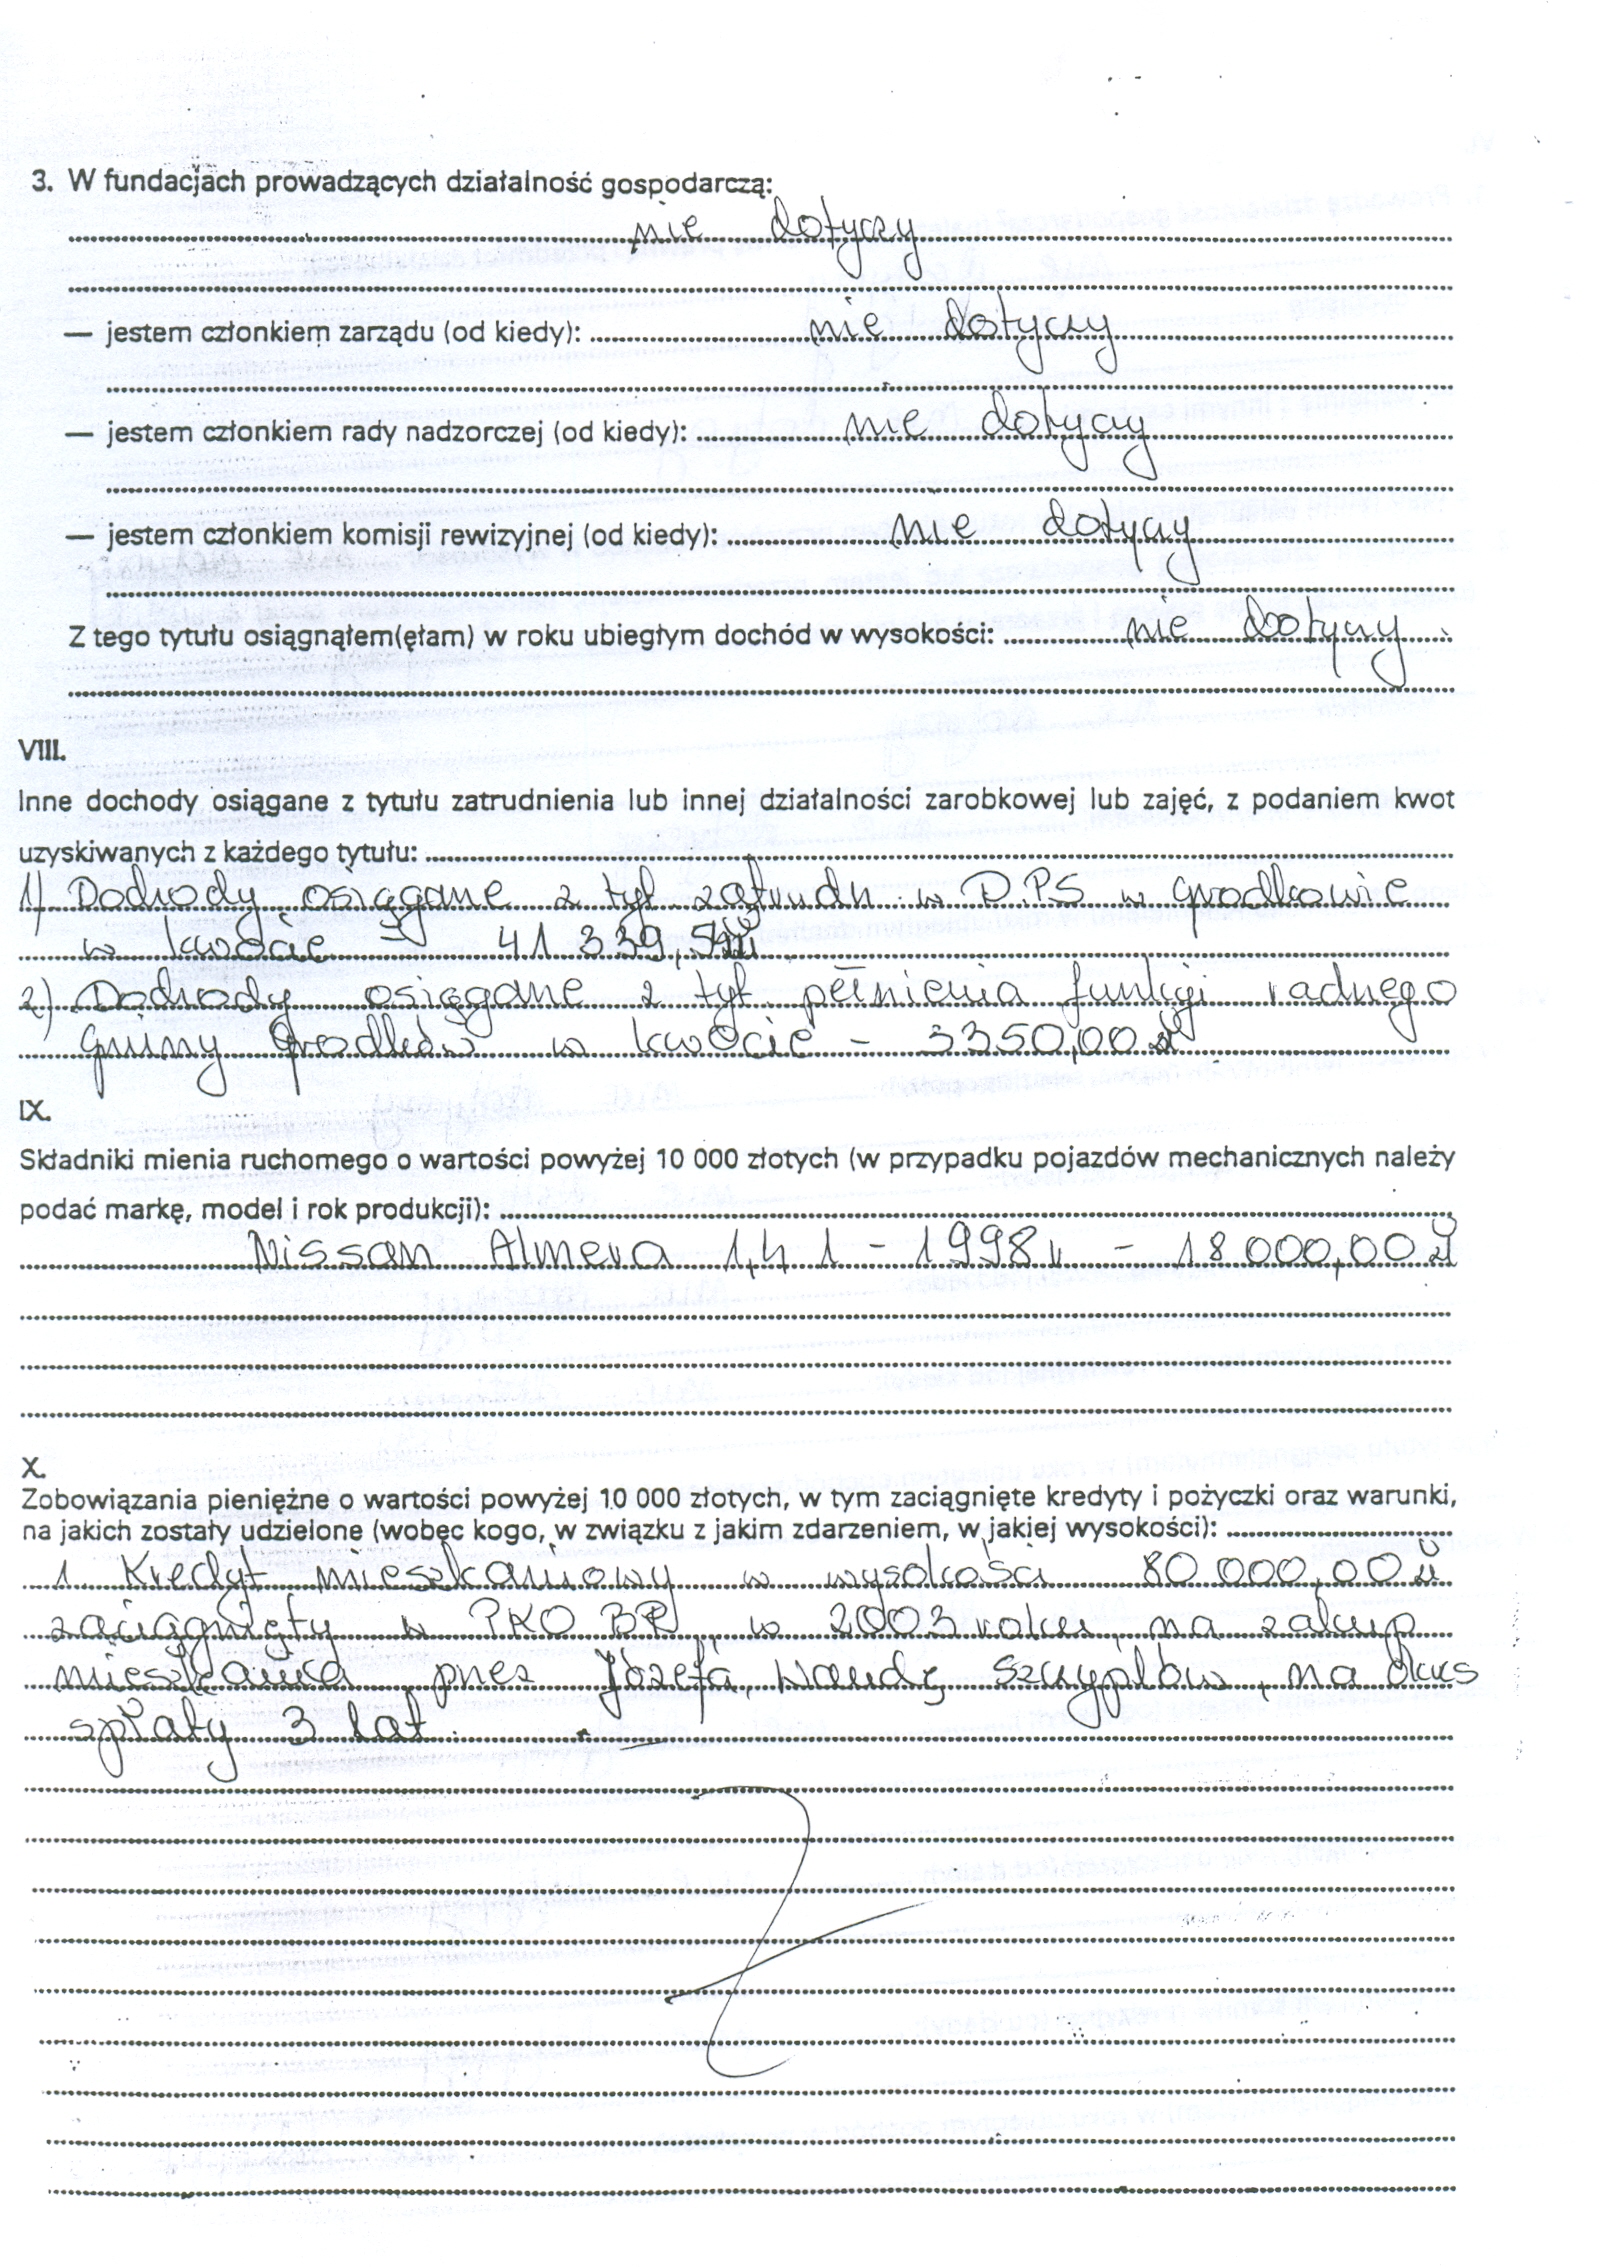 3. W fundacjach prowadzących działalność gospodarczą:
nie dotyczy
— jestem członkiem zarządu (od kiedy): nie dotyczy
— jestem członkiem rady nadzorczej (od kiedy): nie dotyczy
— jestem członkiem komisji rewizyjnej (od kiedy): nie dotyczy
Z tego tytułu osiągnąłem(ęłam) w roku ubiegłym dochód w wysokości: nie dotyczy
VIII.
Inne dochody osiągane z tytułu zatrudnienia lub innej działalności zarobkowej lub zajęć, z podaniem kwot
uzyskiwanych z każdego tytułu:
1) Dochody osiągane z tyt. zatrudn. w D.P.S w Grodkowie
w kwocie - 41 339, zł
2) Dochody osiągane z tyt. pełnienia funkcji radnego
Gminy Grodków w kwocie - 3350,00 zł
IX.
Składniki mienia ruchomego o wartości powyżej 10 000 złotych (w przypadku pojazdów mechanicznych należy
podać markę, model i rok produkcji):
Nissan Almera 1,4 l - 1998 r - 18 000,00 zł
X.
Zobowiązania pieniężne o wartości powyżej 10 000 złotych, w tym zaciągnięte kredyty i pożyczki oraz warunki,
na jakich zostały udzielone (wobec kogo, w związku z jakim zdarzeniem, w jakiej wysokości):
1. Kredyt mieszkaniowy w wysokości 80 000,00 zł
zaciągnięty w PKO BP, w 2003 roku, na zakup
mieszkania, przez Józefa, Wandę Szczypłów, na okres
spłaty 3 lat. —